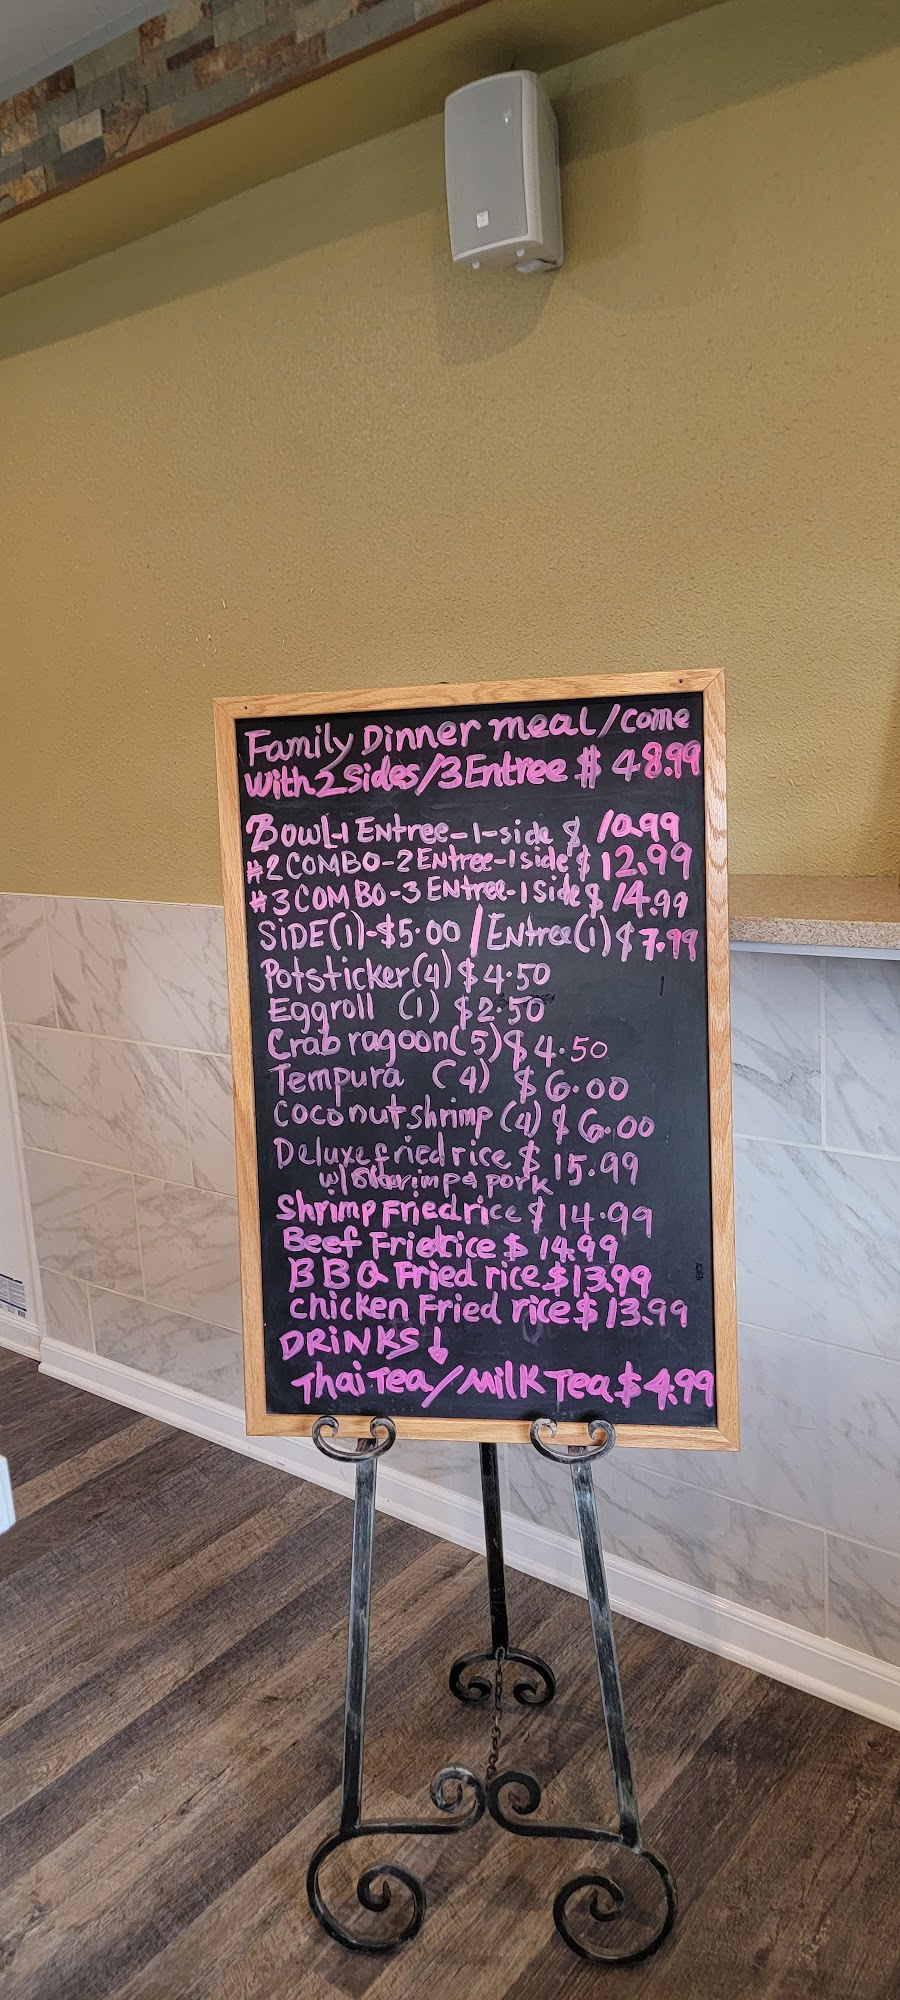 Family Dinner meal/come
with 2 sides/3 Entree $ 48.99
Bowl-1 Entree-1-side $ 10.99
#2 COMBO-2 Entree-1 side $ 12.99
#3 COMBO-3 Entree-1 Side $ 14.99
SIDE(1)-$5.00 / Entree(1) $7.99
Potsticker(4) $4.50
Eggroll (1) $2.50
Crab ragoon(5) $4.50
Tempura (4) $6.00
Coconut shrimp (4) $6.00
Deluxe fried rice $ 15.99
w/ Shrimp & pork
Shrimp Fried rice $ 14.99
Beef Fried rice $ 14.99
BBQ Fried rice $13.99
chicken Fried rice $ 13.99
DRINKS ↓
Thai Tea/Milk Tea $ 4.99